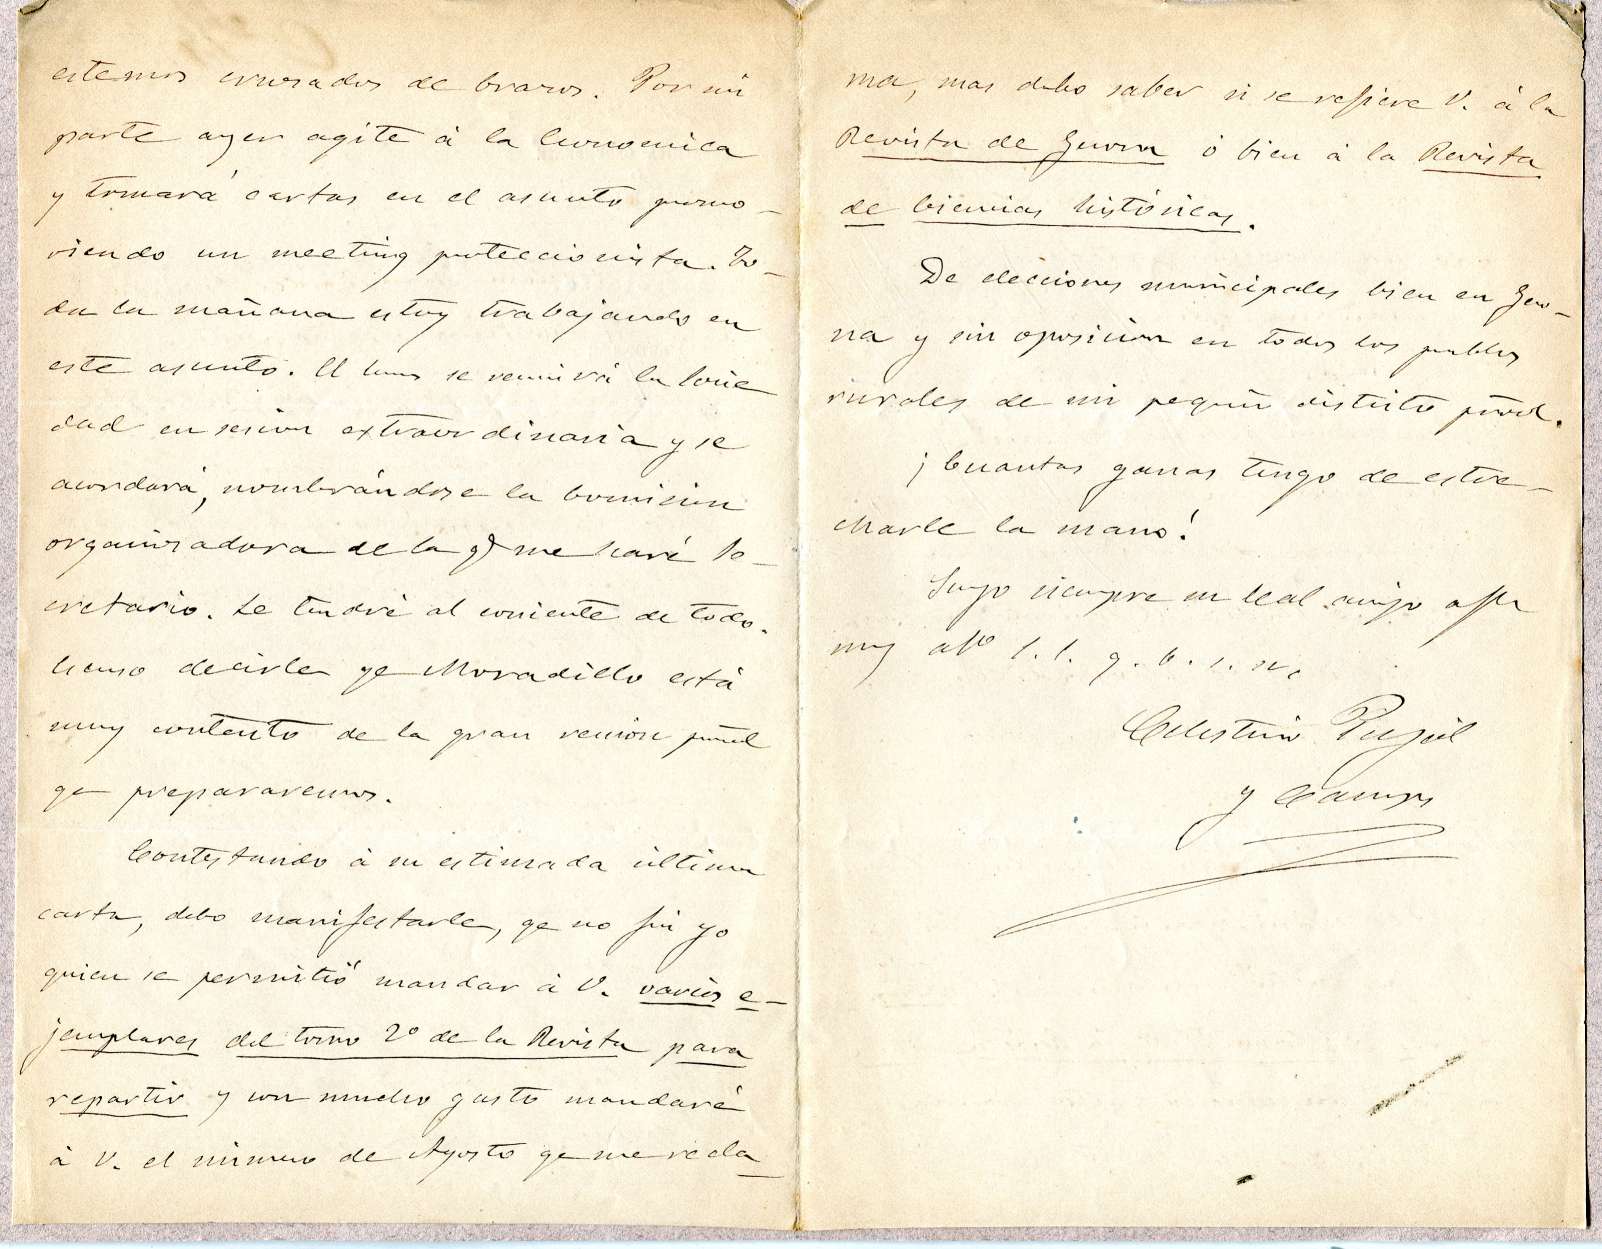 estemos cruzados de brazos. Por mi
parte ayer agité à la Economica
y tomará cartas en el asunto promo-
viendo un meeting proteccionista. To-
da la mañana estoy trabajando en
este asunto. El lunes se reunirá la Socie
dad en sesion extraordinaria y se
acordará, nombrándose la Comision
organizadora de la q̃ me haré Se-
cretario. Le tendré al corriente de todo.
Escuso decirle qe Moradillo está
muy contento de la gran reunion
qe prepararemos.
Contestando à su estimada última
carta, debo manifestarle, qe no fui yo
quien se permitió mandar à V. varios e-
jemplares del tomo 2º de la Revista para
repartir y con mucho gusto mandaré
à V. el número de Agosto qe me recla-
ma, mas debo saber si se refiere V. à la
Revista de Gerona ó bien à la Revista
de Ciencias históricas.
De elecciones municipales bien en Gero-
na y sin oposicion en todos los pueblos
rurales de mi pequeño distrito
¡Cuantas ganas tengo de estre-
charle la mano!
Suyo siempre su leal amigo affm
muy atto S. S. q. b. s. m.
Celestino Pujol
y Camps